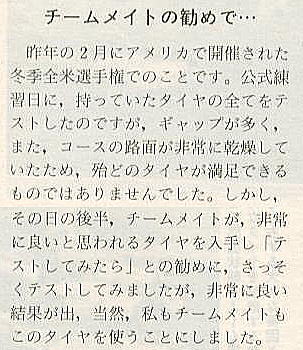 チームメイトの勧めで…
昨年の2月にアメリカで開催された
冬季全米選手権でのことです。公式練
習日に，持っていたタイヤの全てをテ
ストしたのですが，ギャップが多く，
また，コースの路面が非常に乾燥して
いたため，殆どのタイヤが満足できる
ものではありませんでした。しかし，
その日の後半，チームメイトが，非常
に良いと思われるタイヤを入手し「テ
ストしてみたら」との勧めに，さっそ
くテストしてみましたが，非常に良い
結果が出，当然，私もチームメイトも
このタイヤを使うことにしました。